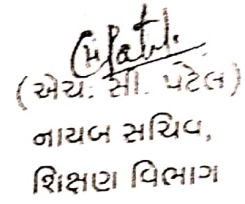 (એચ. સી. પટેલ)
નાયબ સચિવ,
શિક્ષણ વિભાગ